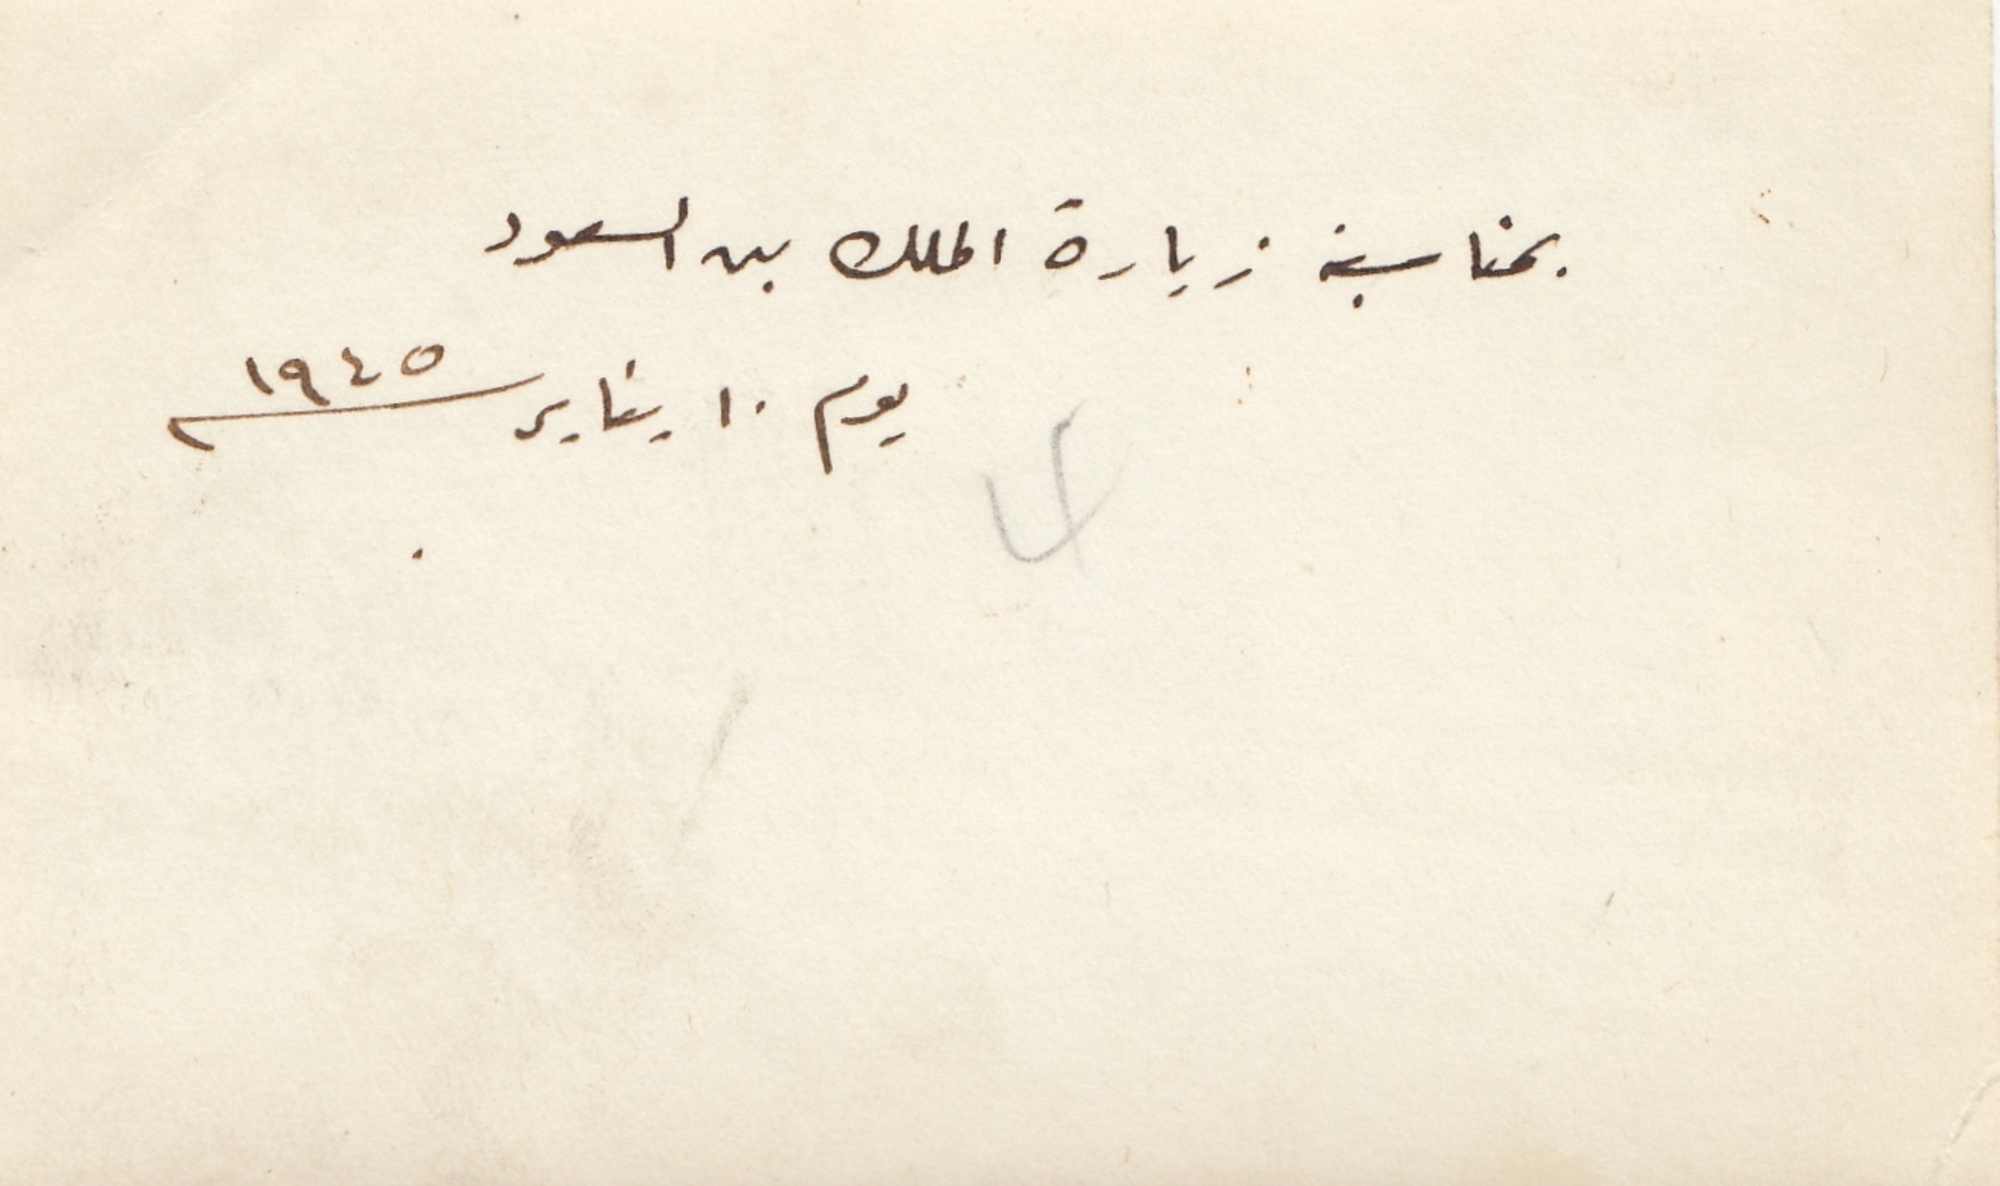 بمناسبة زيارة الملك بن السعود
يوم ١٠ يناير ١٩٤٥